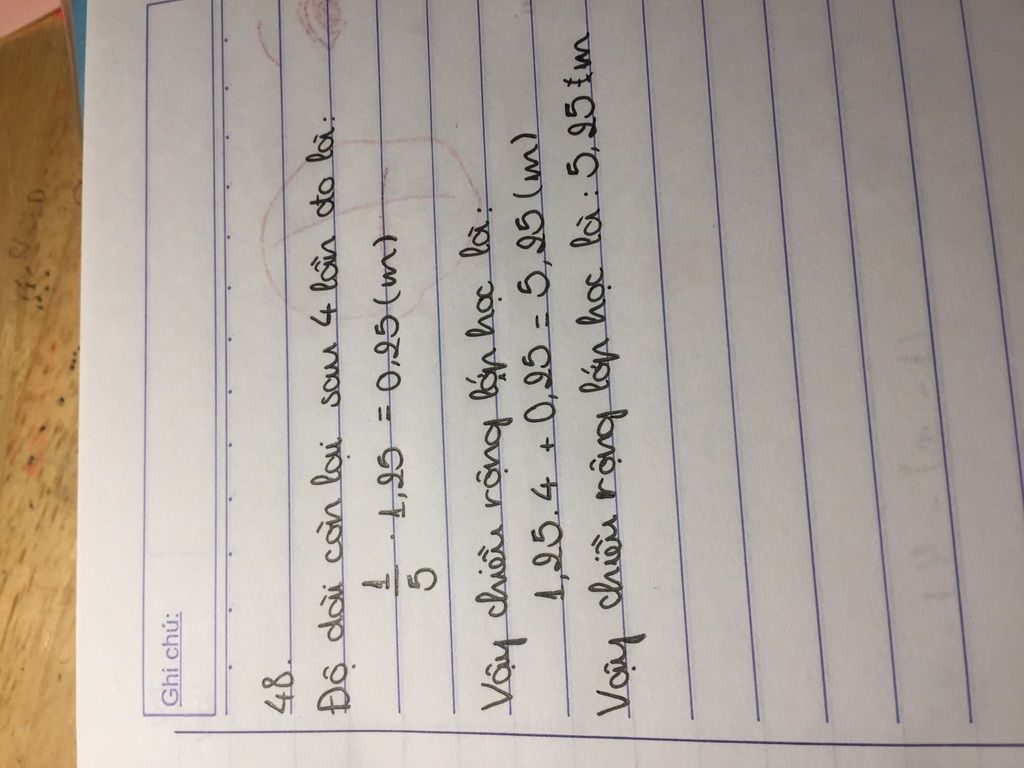 Ghi chú:
48.
Độ dài còn lại sau 4 lần đo là:
1/5 . 1,25 = 0,25 (m)
Vậy chiều rộng lớp học là:
1,25 . 4 + 0,25 = 5,25 (m)
Vậy chiều rộng lớp học là: 5,25 m